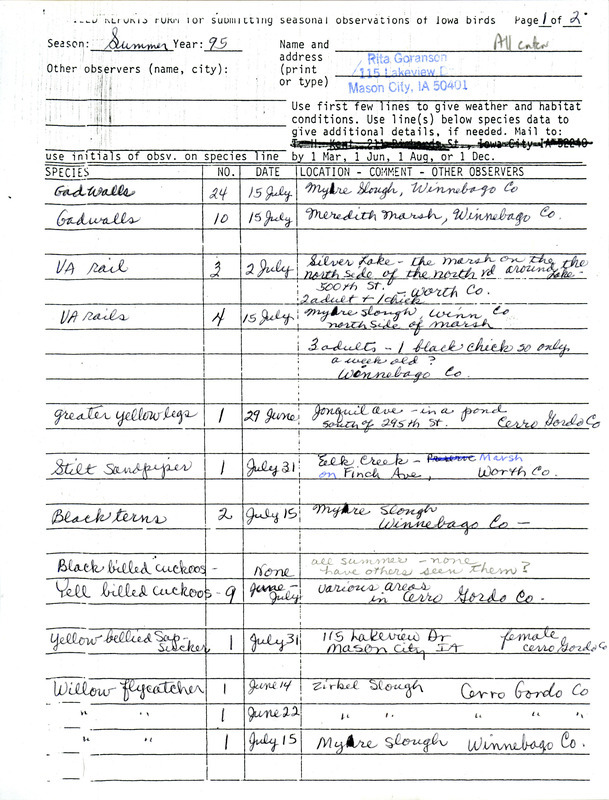 REPORTS FORM for submitting seasonal observations of Iowa birds Page 1 of 2
All enter
Season: Summer Year: 95 Name and
address
(print
or type)
Rita Goranson
115 Lakeview Dr
Mason City, IA 50401
Other observers (name, city):
Use first few lines to give weather and habitat
conditions. Use line(s) below species data to
give additional details, if needed. Mail to:
T. H. Kent, 211 Richards St., Iowa City IA 52240
use initials of obsv. on species line by 1 Mar, 1 Jun, 1 Aug, or 1 Dec.
SPECIES NO. DATE LOCATION - COMMENT - OTHER OBSERVERS
Gadwalls 24 15 July Myre Slough, Winnebago Co
Gadwalls 10 15 July Meredith Marsh, Winnebago Co.
VA rail 3 2 July Silver Lake - the marsh on the the
north side of the north rd around Lake-
500th St. - Worth Co.
2 adult + 1 chick
VA rails 4 15 July Myre Slough, Winn Co
north side of marsh
3 adults - 1 black chick so only
a week old?
Winnebago Co.
greater yellowlegs 1 29 June Jonquil Ave - in a pond
south of 295th St. Cerro Gordo Co
Stilt Sandpiper 1 July 31 Elk Creek - Preserve Marsh
on Finch Ave, Worth Co.
Black terns 2 July 15 Myre Slough
Winnebago Co -
Black billed cuckoos - None all summer - none
have others seen them?
Yell billed cuckoos - 9 June - July various areas
in Cerro Gordo Co.
Yellow bellied Sap-
sucker 1 July 31 115 Lakeview Dr female
Mason City IA Cerro Gordo Co
Willow flycatcher 1 June 14 Zirbel Slough Cerro Gordo Co
" " 1 June 22 " " " "
" " 1 July 15 Myre Slough Winnebago Co.